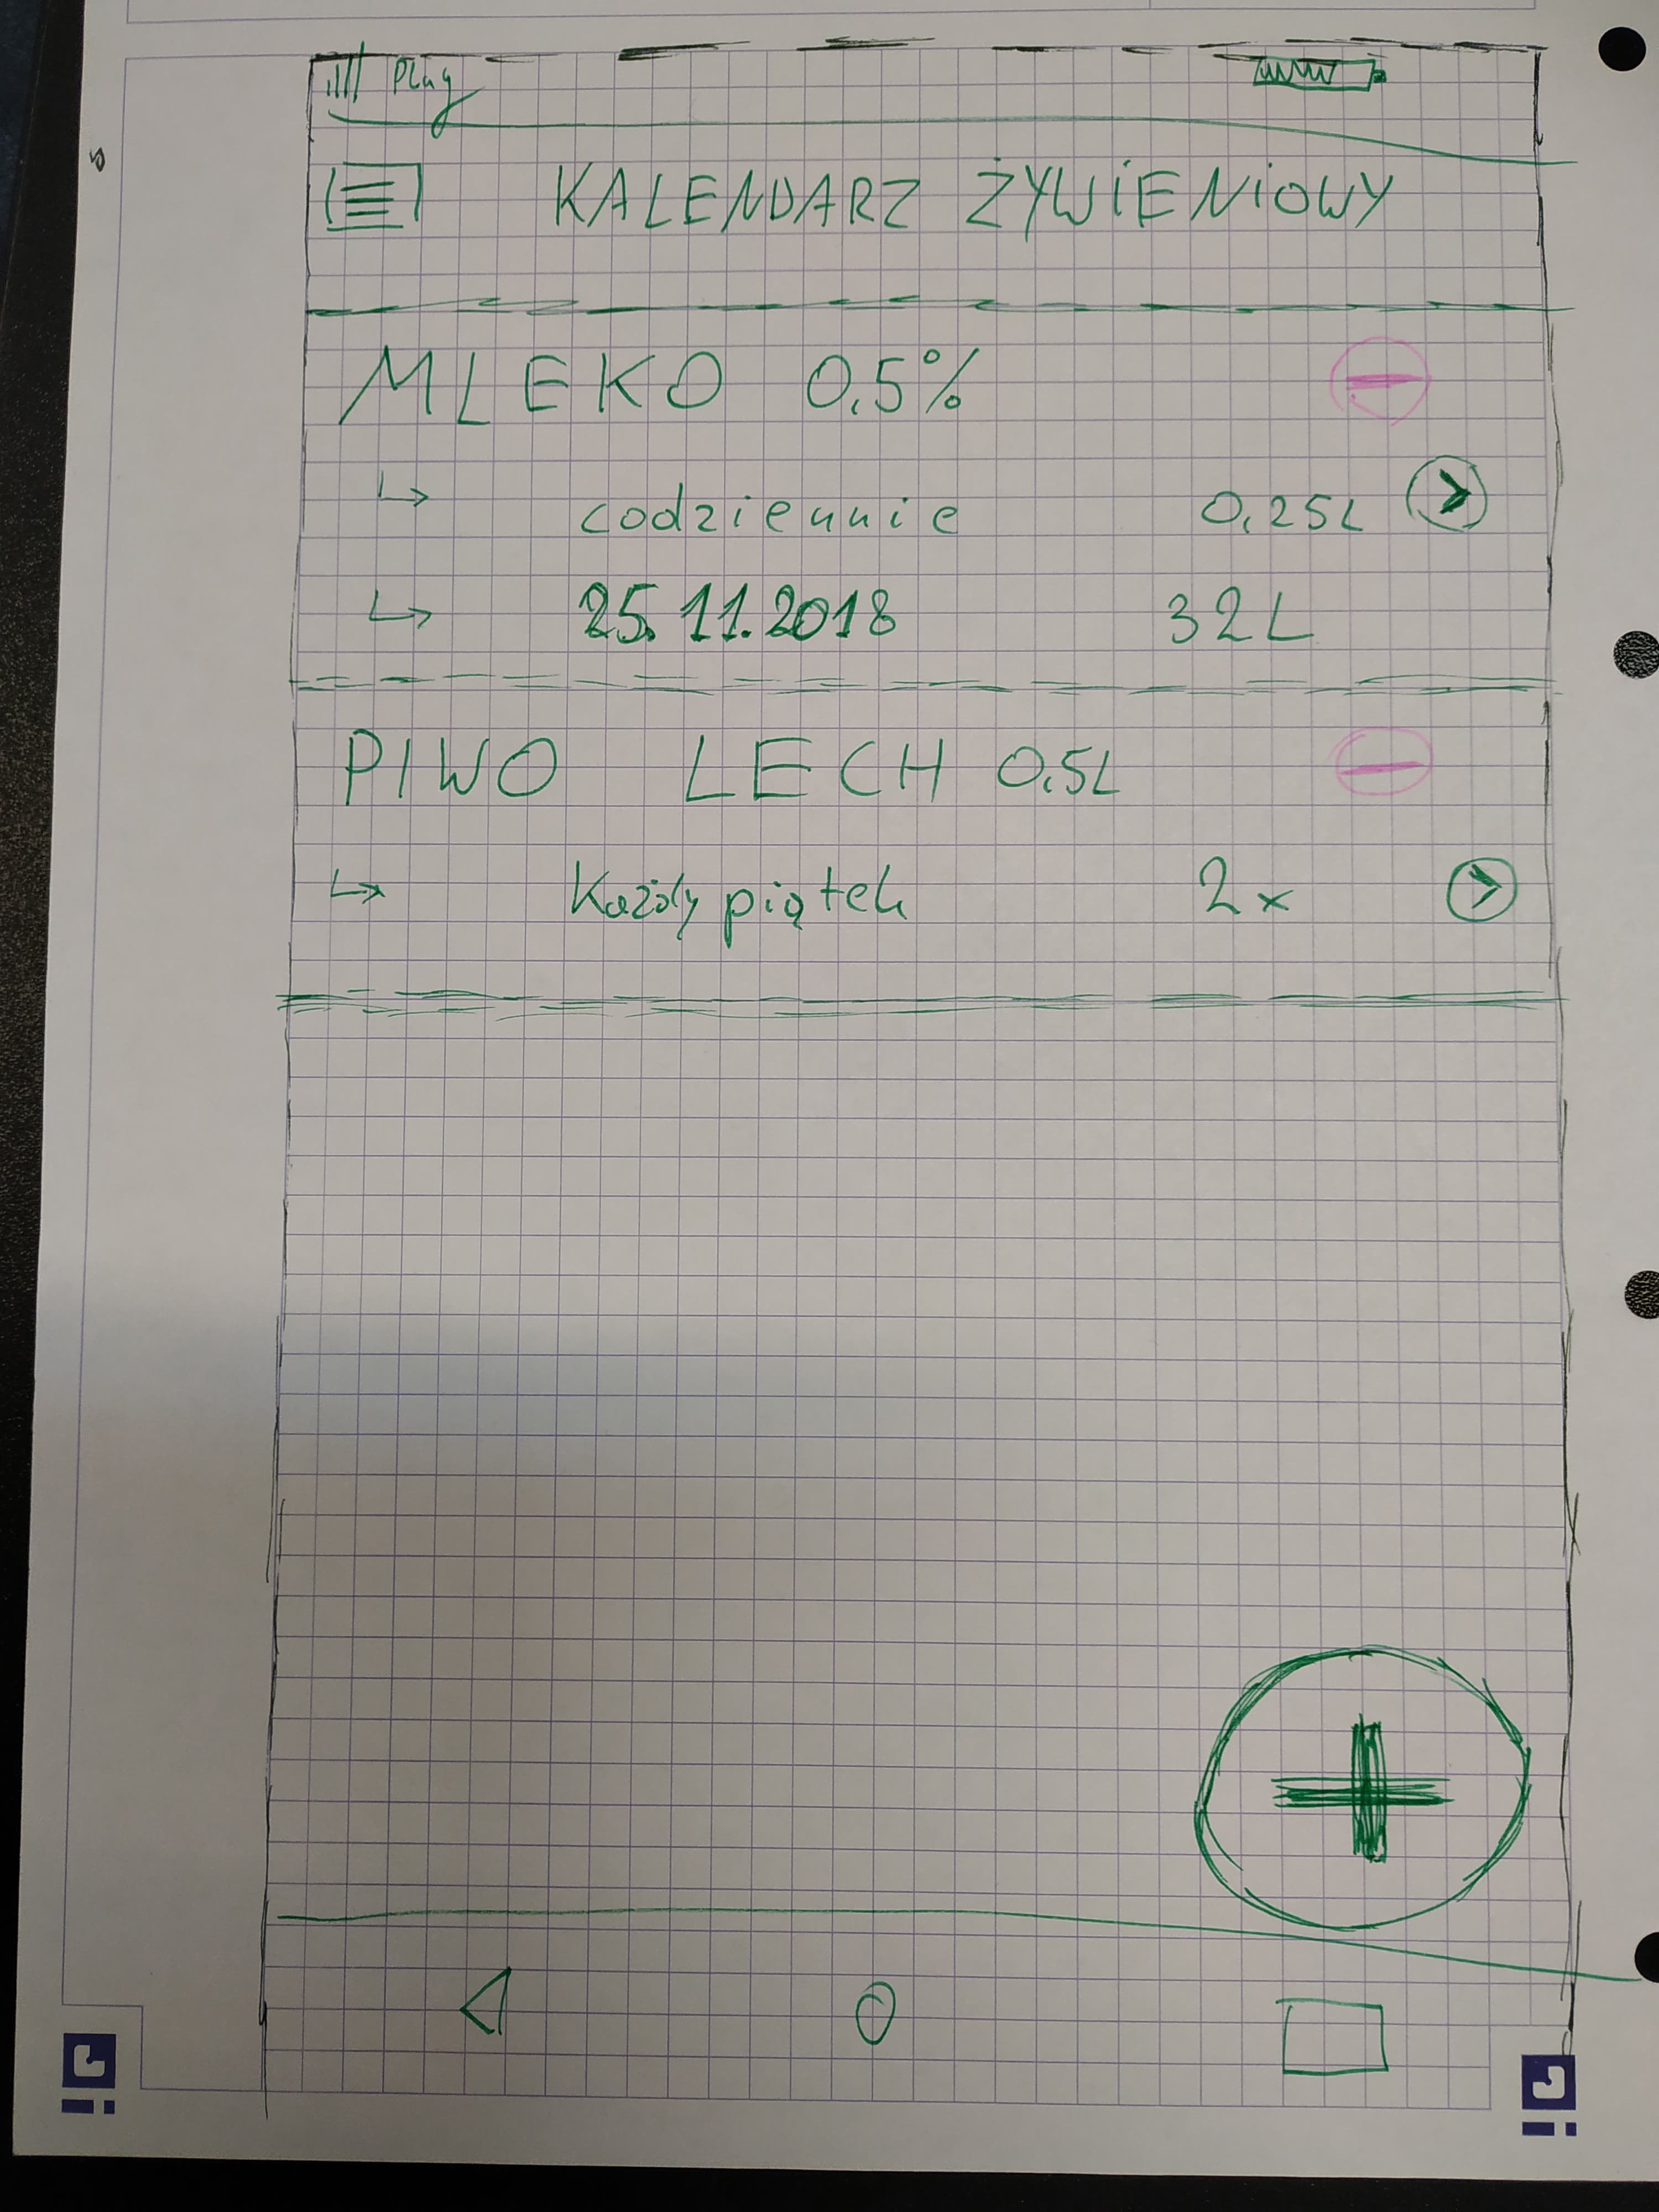 Play
KALENDARZ ŻYWiENiOWY
MLEKO 0,5%
codziennie 0,25L
25.11.2018 32L
PIWO LECH 0,5L
Każdy piątek 2x